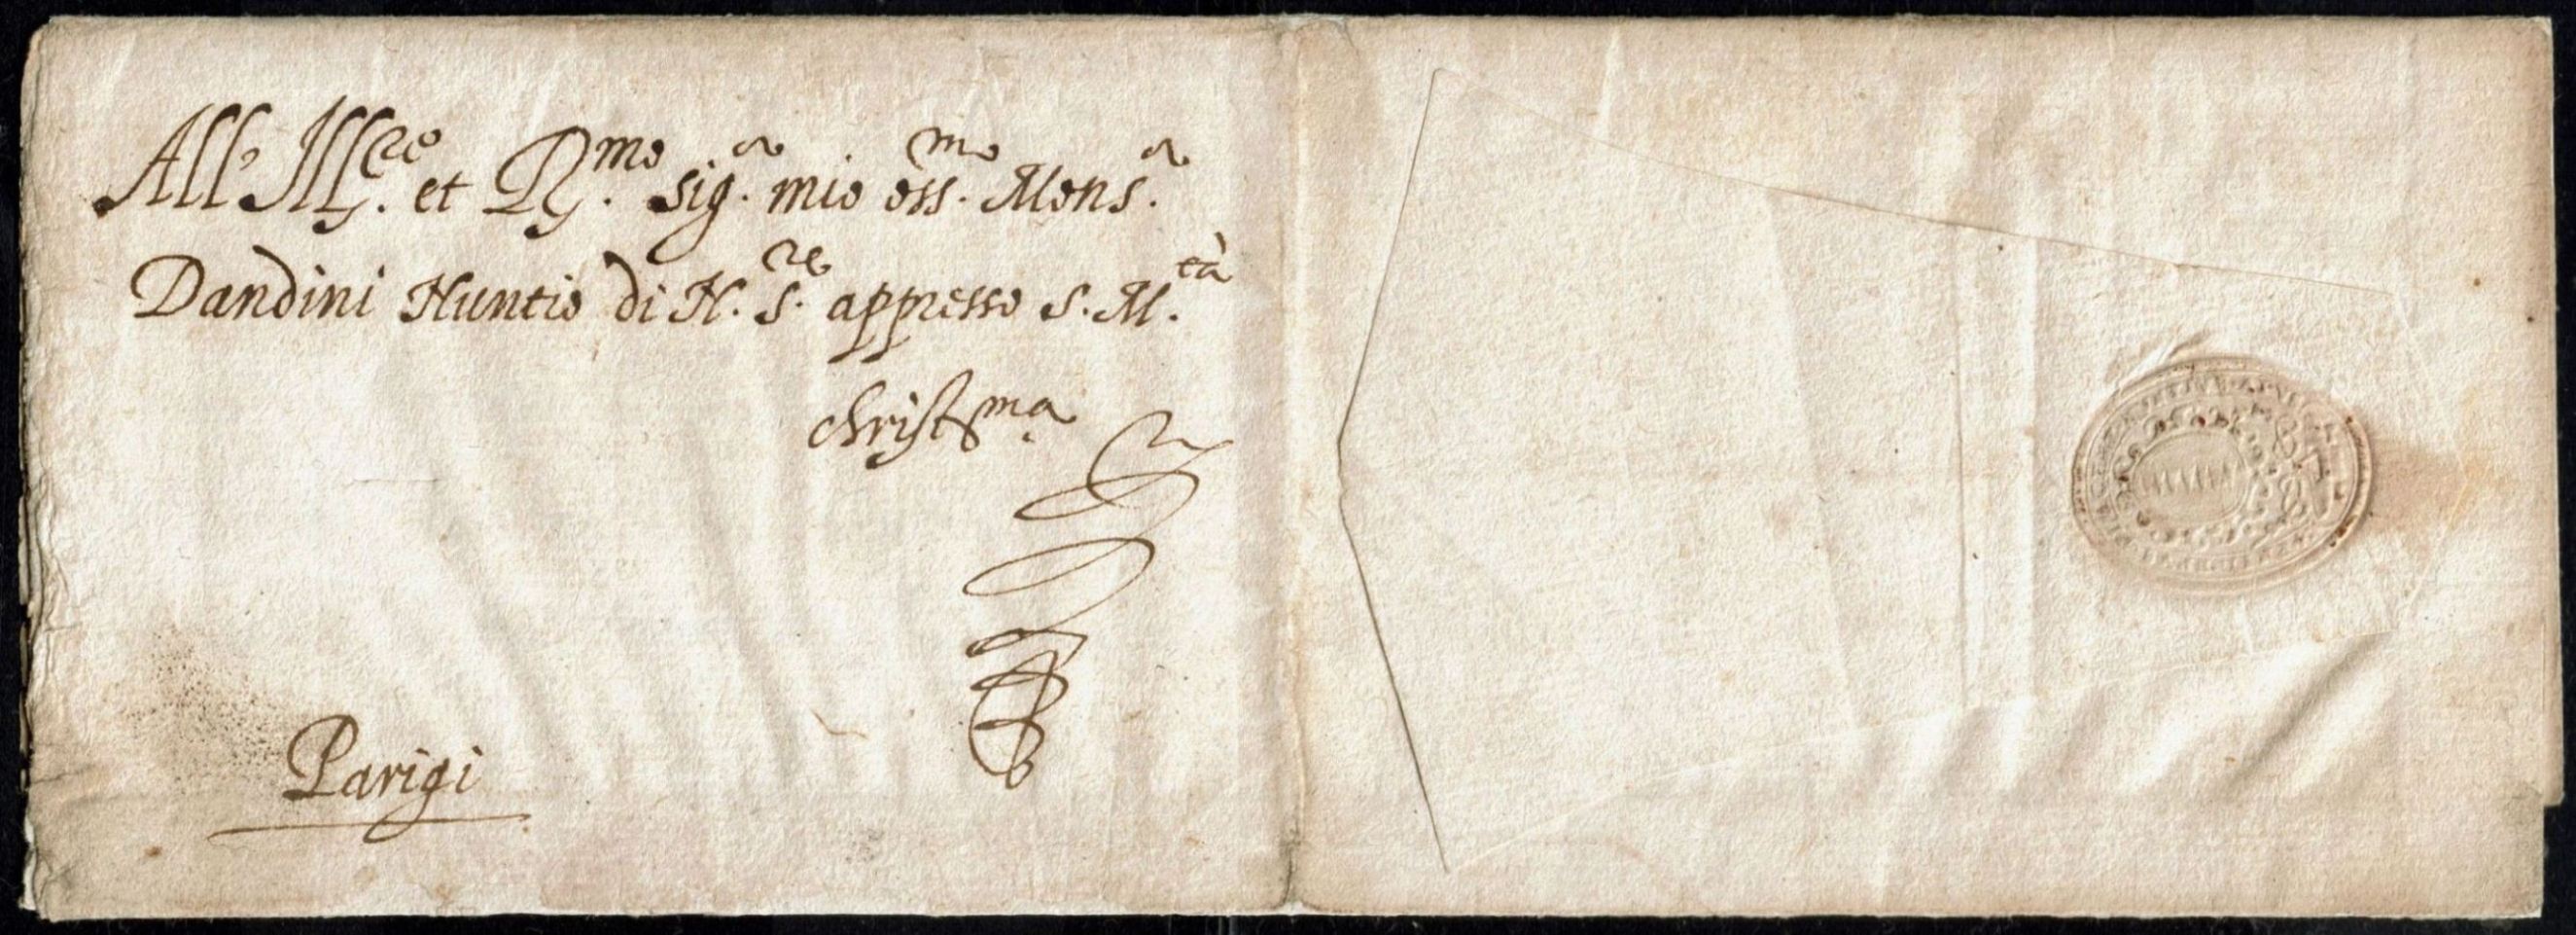 All' Ill.re et R.mo sig.r mio oss.mo Mons.r
Dandini Nuntio di N. S.re appresso S. M.tà
christ.ma
Parigi